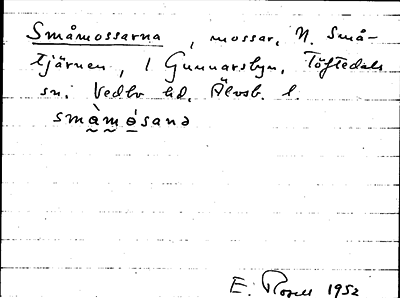 Småmossarna, mossar, N. Små-
tjärnen, i Gunnarsbyn, Töftedals
sn. Vedbo hd. Älvsb. l.
små̀mósanə
E. Rosell 1952